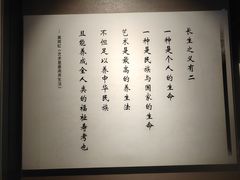 长生之义有二
一种是个人的生命
一种是民族与国家的生命
艺术是最高的养生法
不但足以养中华民族
且能养成全人类的福祉寿考也
——黄宾虹《艺术是最高的养生法》